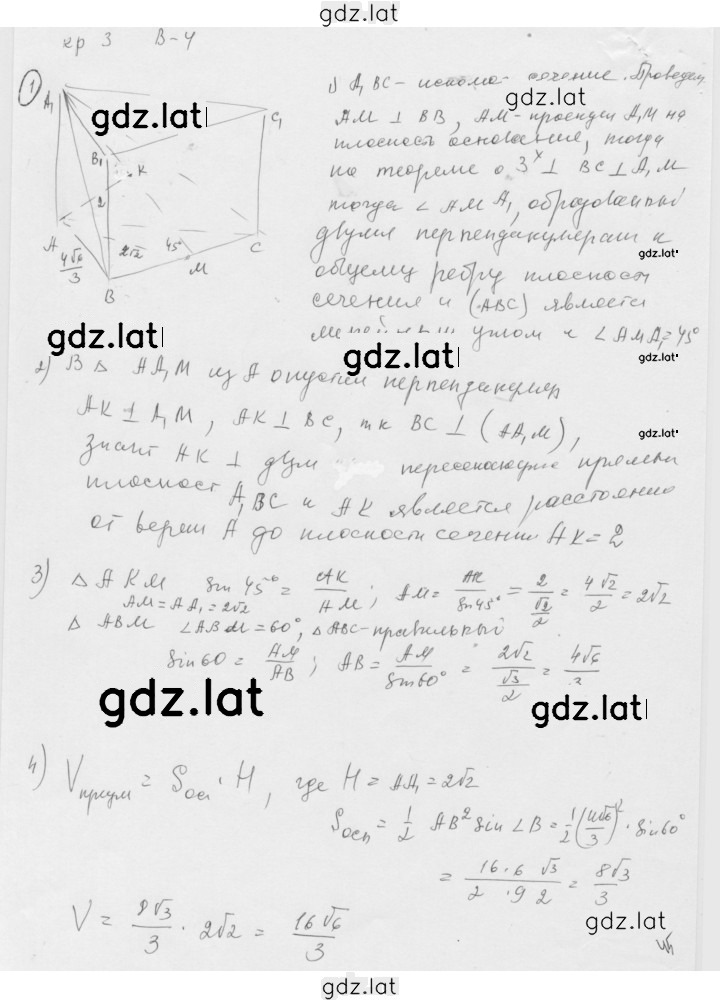 gdz.lat
кр 3 В-4
1
A₁
C₁
B₁
K
2
A
2√2
45°
C
4√6/3
M
B
1) A₁BC - сечение. Проведем
AM ⊥ BB, AM - проекция A₁M на
плоскость основания, тогда
по теореме о 3ˣ ⊥ BC ⊥ A₁M
тогда ∠AMA₁, образованный
двумя перпендикулярами к
общему ребру плоскости
сечения и (ABC) является
углом и ∠AMA₁=45°
gdz.lat
gdz.lat
gdz.lat
gdz.lat
gdz.lat
2) В △ AA₁M из A опустим перпендикуляр
AK ⊥ A₁M, AK ⊥ BC, тк BC ⊥ (AA₁M),
gdz.lat
значит AK ⊥ двум пересекающие прямым
плоскост A₁BC и AK является расстояние
от верши A до плоскости сечения AK=2
3) △ AKM sin 45° = AK/AM; AM = AK/sin45° = 2/(√2/2) = 4√2/2 = 2√2
AM=AA₁=2√2
△ ABM ∠ABM=60°, △ABC-правильный
sin60 = AM/AB; AB = AM/sin60° = 2√2/(√3/2) = 4√6/3
gdz.lat
gdz.lat
4) Vпризм = Sосн · H, где H = AA₁ = 2√2
Sосн = 1/2 AB² sin ∠B = 1/2 (4√6/3)² · sin60°
= 16·6 √3/2·9 2 = 8√3/3
V = 8√3/3 · 2√2 = 16√6/3
gdz.lat
gdz.lat